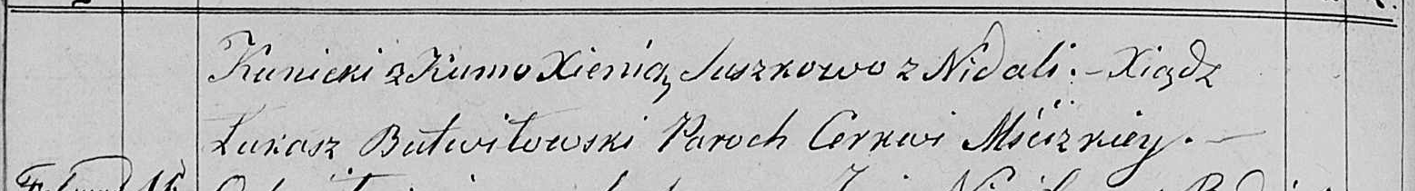 Kunicki z Kumo Xienią Suszkowo z Nidali. – Xiądz
Łukasz Butwiłowski Paroch Cerkwi Mściżkiey. –